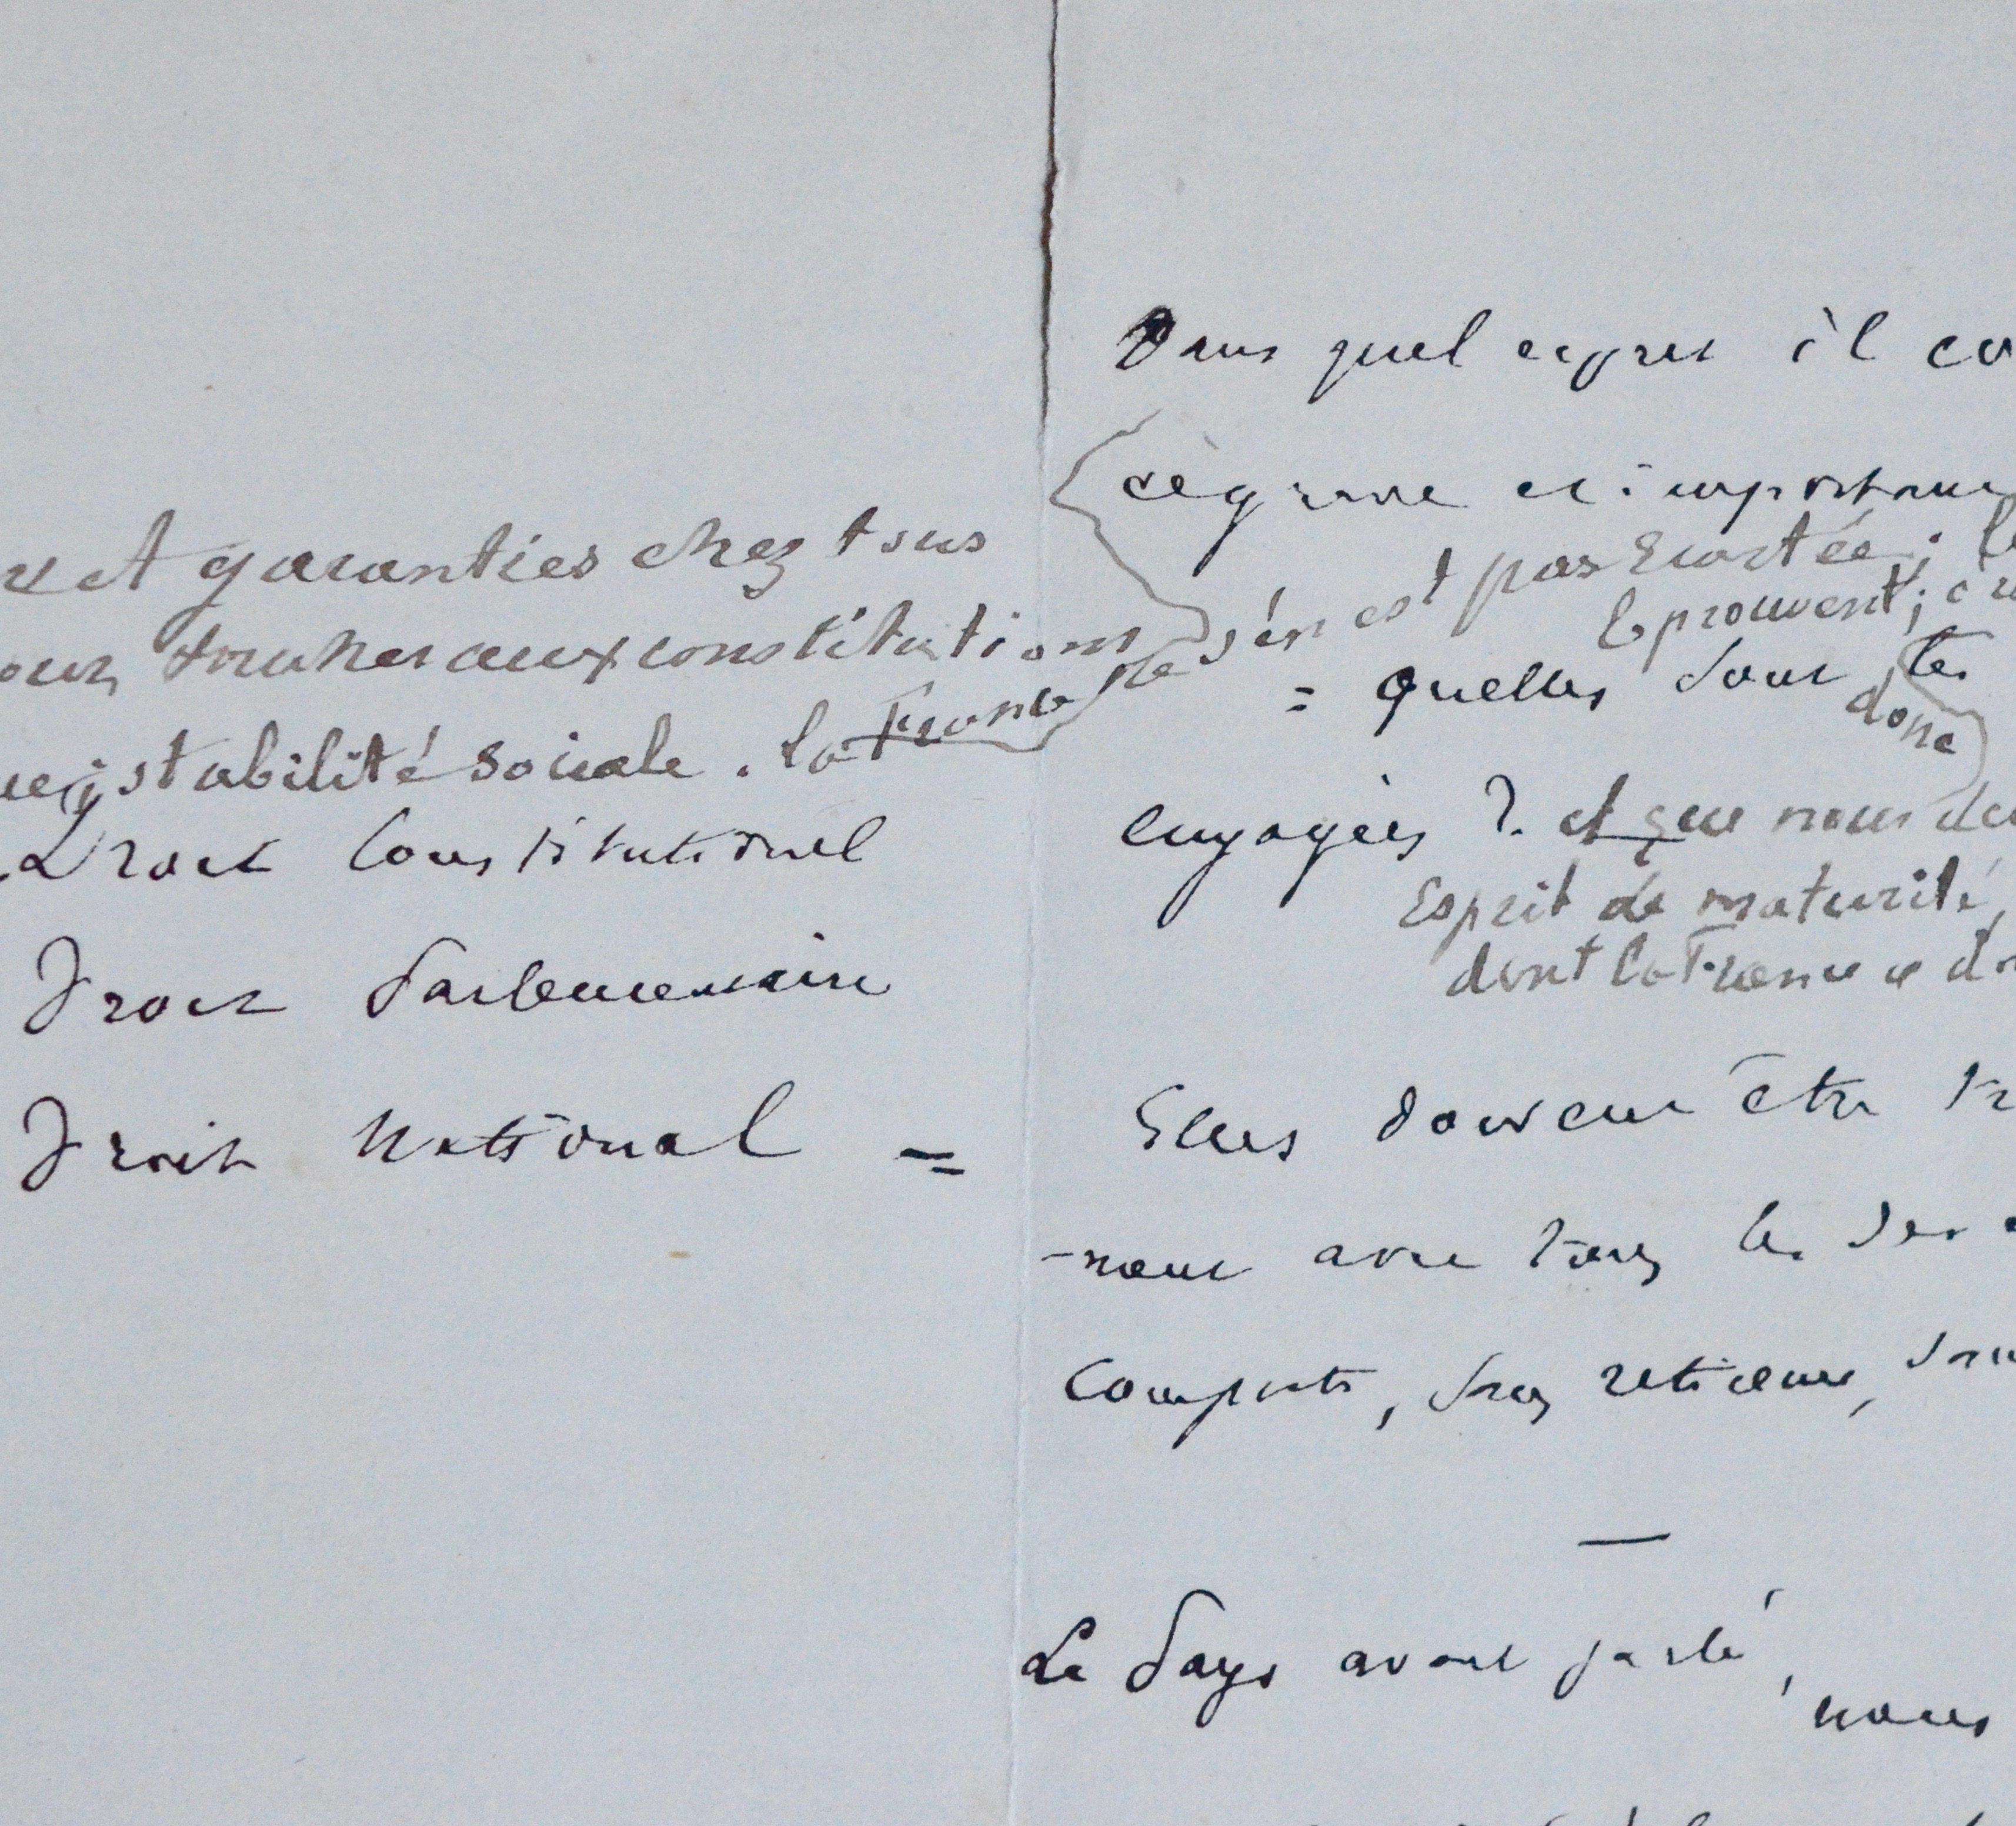 et garanties chez tous
toucher aux constitutions
stabilité sociale. la France ne
Droit Constitutionnel
Droit Parlementaire
Droit National =
Dans quel esprit il co
si grave et si importante
s'en est pas écartée; le
le prouvent;
= quelles sont les
donc
engagées ? et que nous
Esprit de maturité,
dont la France a
Elles doivent être
avec tous les
Compects, sans réticence, sans
—
Le Pays avait parlé,
nous